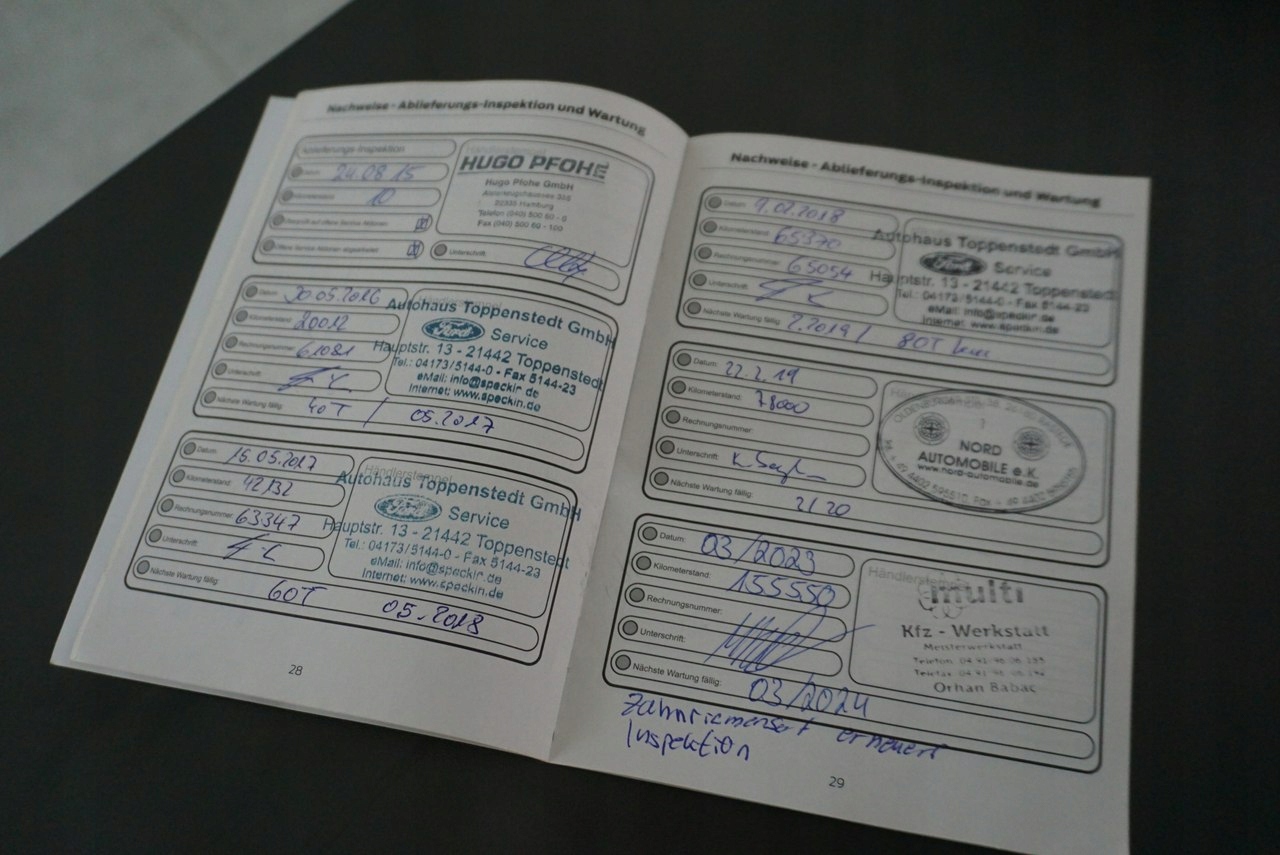 Nachweise - Ablieferungs-Inspektion und Wartung
Ablieferungs-Inspektion
Datum: 24.08.15
Kilometerstand: 10
Unterschrift:
HUGO PFOHE
Hugo Pfohe GmbH
22335 Hamburg
Telefon (040) 500 60 - 0
Fax (040) 500 60 - 100
Datum: 30.05.2016
Kilometerstand: 20012
Rechnungsnummer: 61081
Unterschrift:
Nächste Wartung fällig: 40T / 05.2017
Autohaus Toppenstedt GmbH
Ford Service
Hauptstr. 13 - 21442 Toppenstedt
Tel.: 04173/5144-0 - Fax 5144-23
eMail: info@speckin.de
Internet: www.speckin.de
Datum: 15.05.2017
Kilometerstand: 42132
Rechnungsnummer: 63347
Unterschrift:
Nächste Wartung fällig: 60T 05.2018
Händlerstempel
Autohaus Toppenstedt GmbH
Ford Service
Hauptstr. 13 - 21442 Toppenstedt
Tel.: 04173/5144-0 - Fax 5144-23
eMail: info@speckin.de
Internet: www.speckin.de
28
Nachweise - Ablieferungs-Inspektion und Wartung
Datum: 9.02.2018
Kilometerstand: 65370
Rechnungsnummer: 65054
Unterschrift:
Nächste Wartung fällig: 2.2019 / 80T km
Autohaus Toppenstedt GmbH
Ford Service
Hauptstr. 13 - 21442 Toppenstedt
Tel.: 04173/5144-0 - Fax 5144-23
eMail: info@speckin.de
Internet: www.speckin.de
Datum: 22.2.19
Kilometerstand: 78000
Rechnungsnummer:
Unterschrift:
Nächste Wartung fällig: 2/20
NORD
AUTOMOBILE e.K.
www.nord-automobile.de
Datum: 03/2023
Kilometerstand: 155550
Rechnungsnummer:
Unterschrift:
Nächste Wartung fällig: 03/2024
Händlerstempel
multi
Kfz - Werkstatt
Meisterwerkstatt
Orhan Babaç
Zahnriemensatz erneuert
Inspektion
29